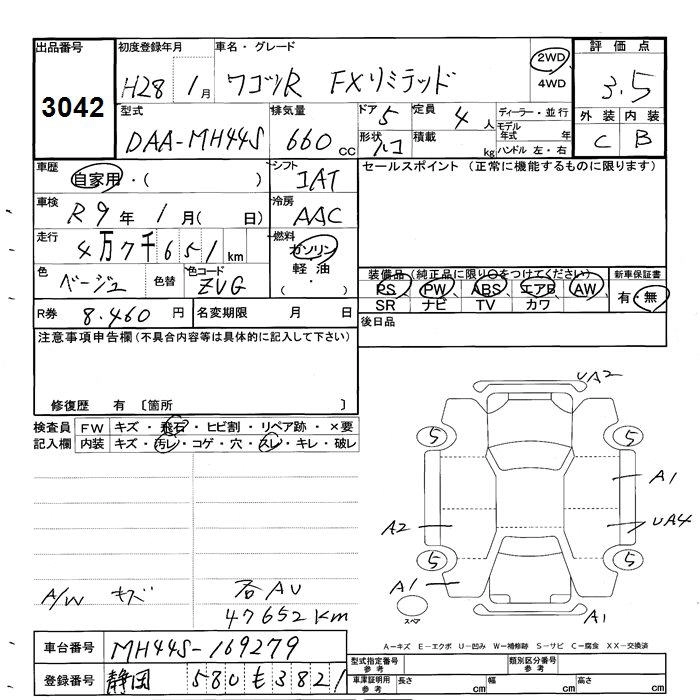 出品番号 初度登録年月 車名・グレード 評価点
3042 H28 1月 ワゴンR FXリミテッド 2WD 4WD 3.5
型式 排気量 ドア 定員 ディーラー・並行 外装 内装
DAA-MH44S 660cc 5 4人 モデル年式 年 C B
形状 積載 kg ハンドル 左・右
車歴 シフト セールスポイント (正常に機能するものに限ります)
自家用・( ) IAT
車検 冷房
R9年 1月( 日) AAC
走行 燃料
4万7千651km ガソリン
軽油
( ・ )
色 色替 色コード 装備品(純正品に限り○をつけてください) 新車保証書
ベージュ ZVG PS PW ABS エアB AW 有・無
SR ナビ TV カワ
R券 8.460円 名変期限 月 日 後日品
注意事項申告欄(不具合内容等は具体的に記入して下さい)
修復歴 有 〔箇所 〕
検査員 FW キズ・飛石・ヒビ割・リペア跡・×要
記入欄 内装 キズ・汚レ・コゲ・穴・スレ・キレ・破レ
UA2
5 5
A1
A2 UA4
5 5
A/W キズ A1 A1
47652km
スペア
A=キズ E=エクボ U=凹み W=補修跡 S=サビ C=腐食 XX=交換済
車台番号 MH44S-169279
型式指定番号 参考 類別区分番号 参考
登録番号 静岡 580 も 3821
車庫証明用 参考 長さ cm 幅 cm 高さ cm